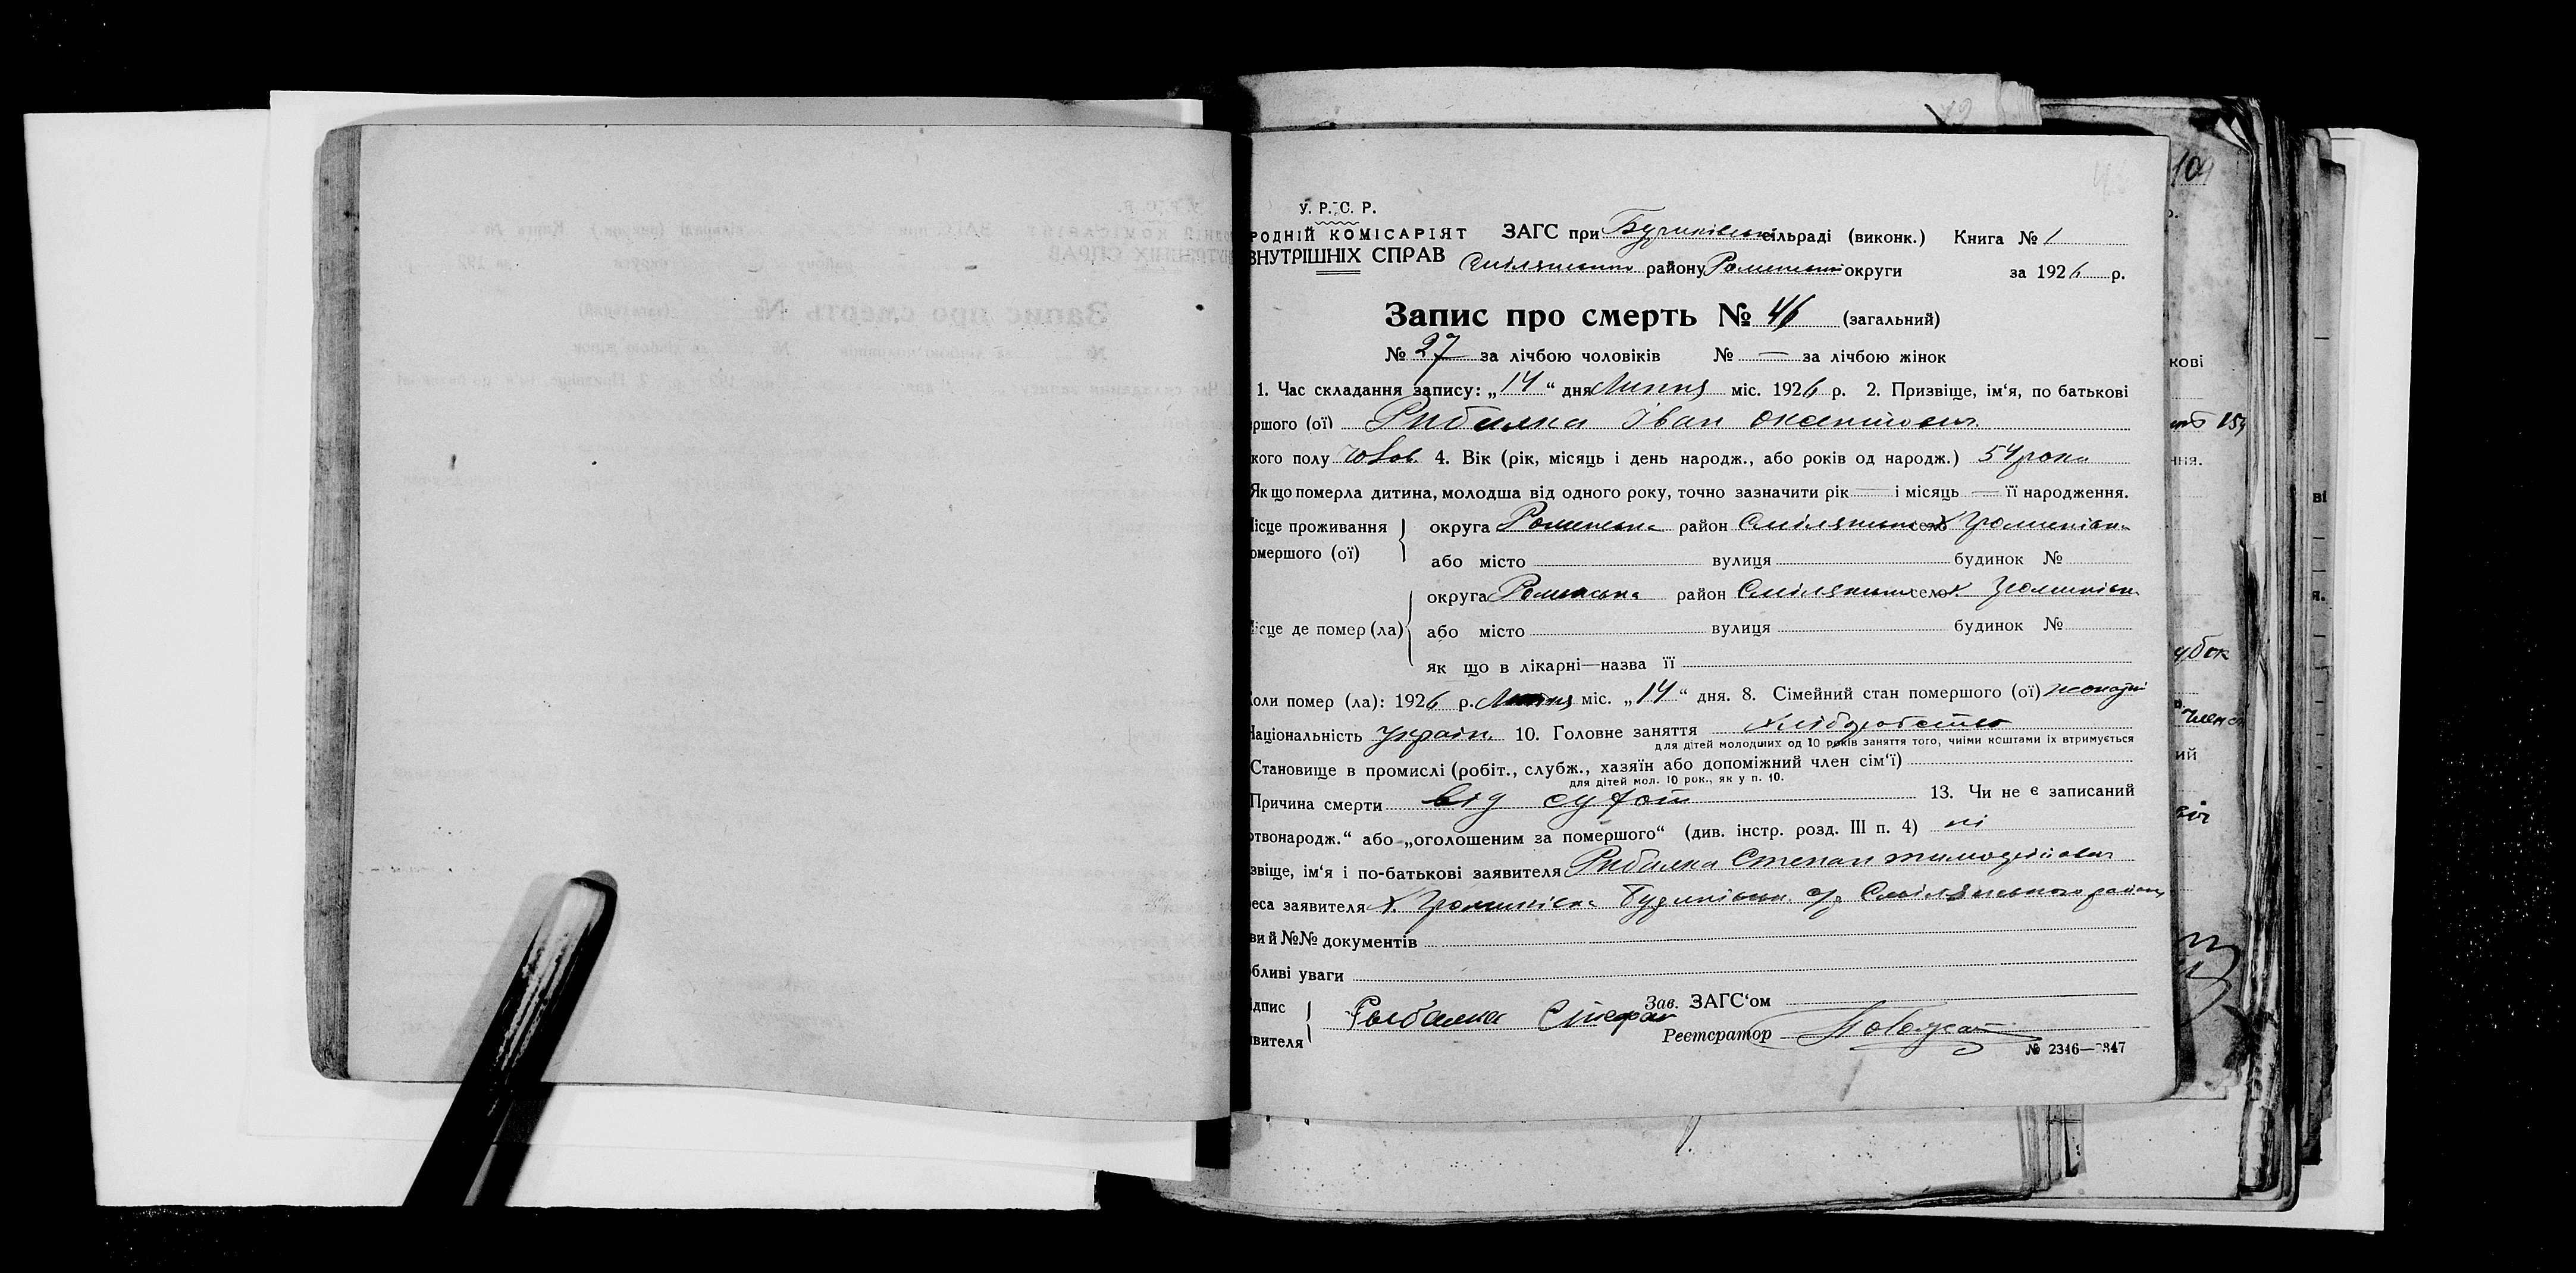 У. Р. С. Р.
РОДНІЙ КОМІСАРІЯТ ЗАГС при сільраді (виконк.) Книга № 1
ВНУТРІШНІХ СПРАВ району округи за 1926 р.
Запис про смерть № 46 (загальний)
№ 27 за лічбою чоловіків № — за лічбою жінок
1. Час складання запису: „14“ дня Липня міс. 1926 р. 2. Призвіще, ім‘я, по батькові
ршого (ої) Рибалка Іван Оксентієвич
кого полу чолов. 4. Вік (рік, місяць і день народж., або років од народж.) 54 роки
Як що померла дитина, молодша від одного року, точно зазначити рік — і місяць — її народження.
ісце проживання округа Роменська район село х
омершого (ої) або місто вулиця будинок №
округа Роменська район село х
ісце де помер (ла) або місто вулиця будинок №
як що в лікарні—назва її
оли помер (ла): 1926 р. Липня міс. „14“ дня. 8. Сімейний стан помершого (ої) жонатий
аціональність україн. 10. Головне заняття хліборобство
для дітей молодших од 10 років заняття того, чиїми коштами їх втримується
Становище в промислі (робіт., служб., хазяїн або допоміжний член сім‘ї)
для дітей мол. 10 рок., як у п. 10.
Причина смерти від сухот 13. Чи не є записаний
ртвонародж.“ або „оголошеним за помершого“ (див. інстр. розд. III п. 4) ні
звіще, ім‘я і по-батькові заявителя Рибалка Степан тимофійович
еса заявителя х. с/р Смілянського району
ви й №№ документів
бливі уваги
ідпис Рыбалка Степан Зав. ЗАГС‘ом
явителя Реєстратор
№ 2346—2347